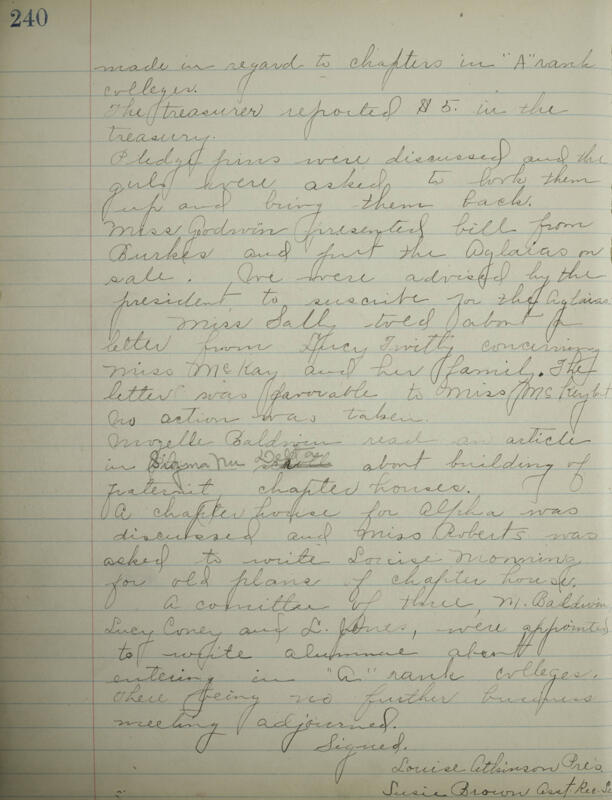 240
made in regard to chapters in "A" rank
colleges.
The treasurer reported $5. in the
treasury.
Pledge pins were discussed and the
girls were asked to look them
up and bring them back.
Miss Godwin presented bill from
Burkes and put the Aglaias on
sale. We were advised by the
president to suscribe for the Aglaias
Miss Sally told about a
letter from Lucy Twitty concerning
Miss McKay and her family. The
letter was favorable to Miss McKeyht
No action was taken.
Mozelle Baldwin read an article
in Sigma Nu Delta about building of
fraternit chapter houses.
A chapter house for Alpha was
discussed and Miss Roberts was
asked to write Louise Monning
for old plans of chapter house.
A comittee of three, M. Baldwin
Lucy Coney and L. Jones, were appointed
to write alumnae about
entering in "A" rank colleges.
There being no further business
meeting adjourned.
Signed.
Louise Atkinson Pres
Susie Brown Asst Rec. Sec